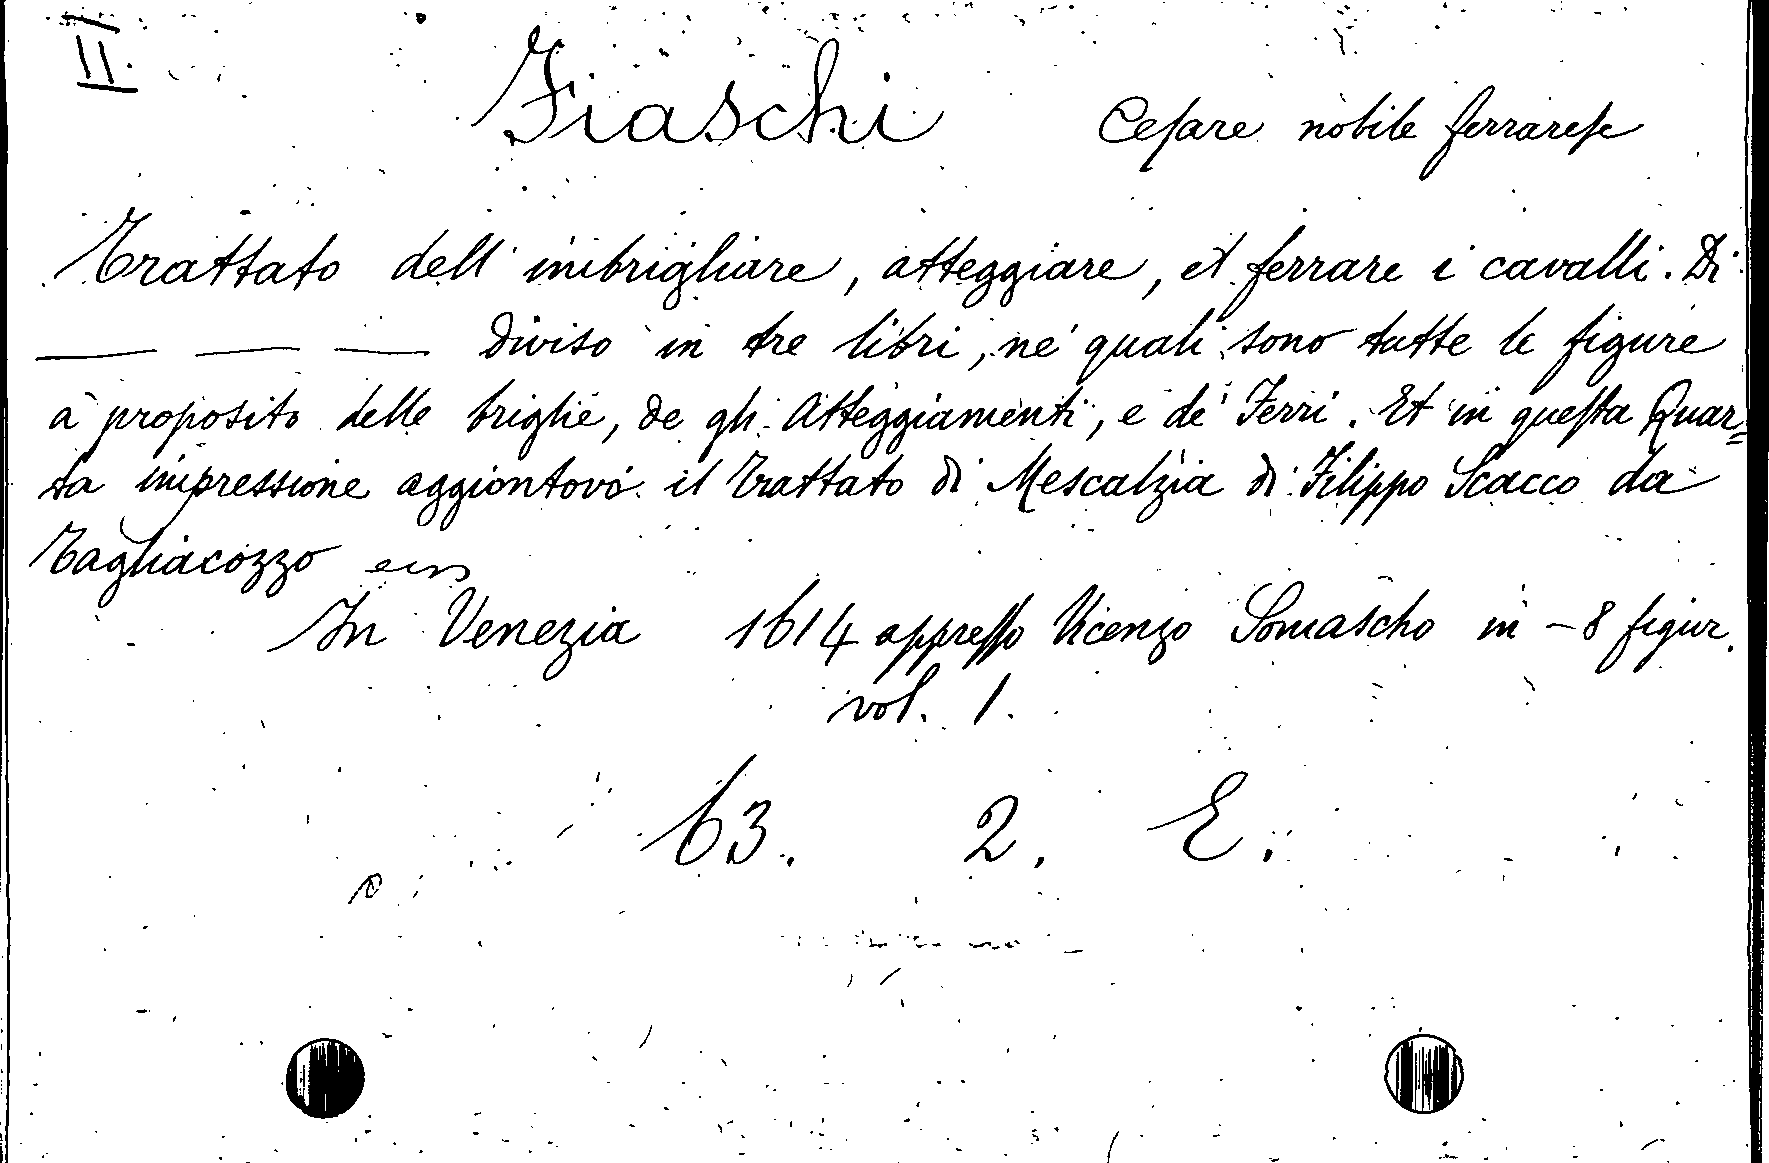 II.
Fiaschi Cesare nobile ferrarese
Trattato dell' imbrigliare, atteggiare, et ferrare i cavalli. Di
— — — Diviso in tre libri, ne' quali sono tutte le figure
à proposito delle briglie, de gli Atteggiamenti, e de' Ferri. Et in questa Quar=
ta impressione aggiontovi il Trattato di Mescalzia di Filippo Scacco da
Tagliacozzo
In Venezia 1614 appresso Vicenzo Somascho in -8 figur.
vol. 1.
63. 2. E.